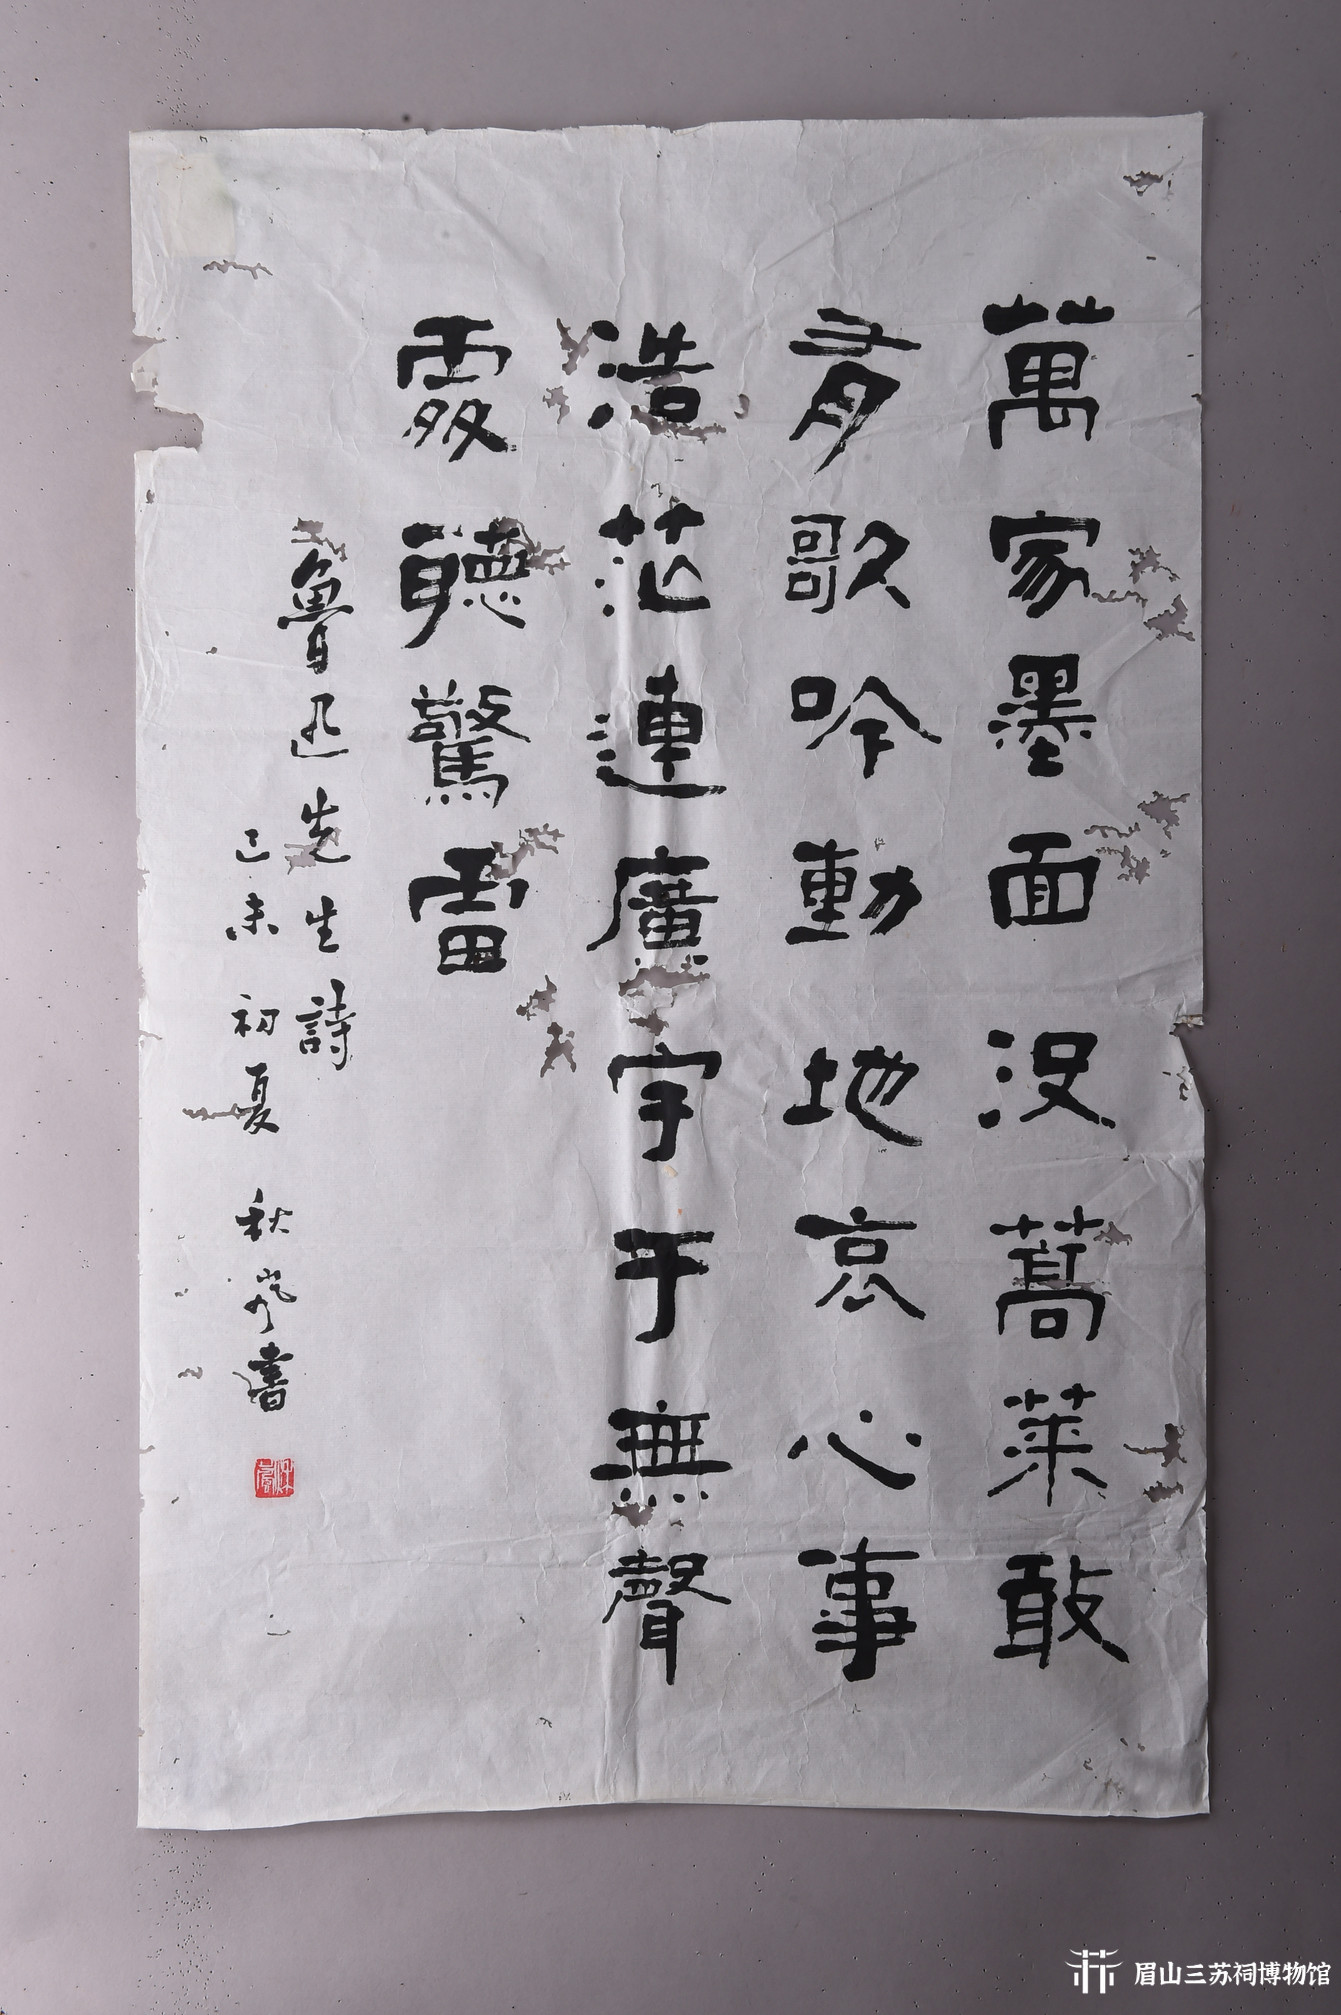 萬家墨面没蒿萊敢
有歌吟動地哀心事
浩茫連廣宇于無聲
處聽驚雷
魯迅先生詩
己未初夏秋嵐書
眉山三苏祠博物馆